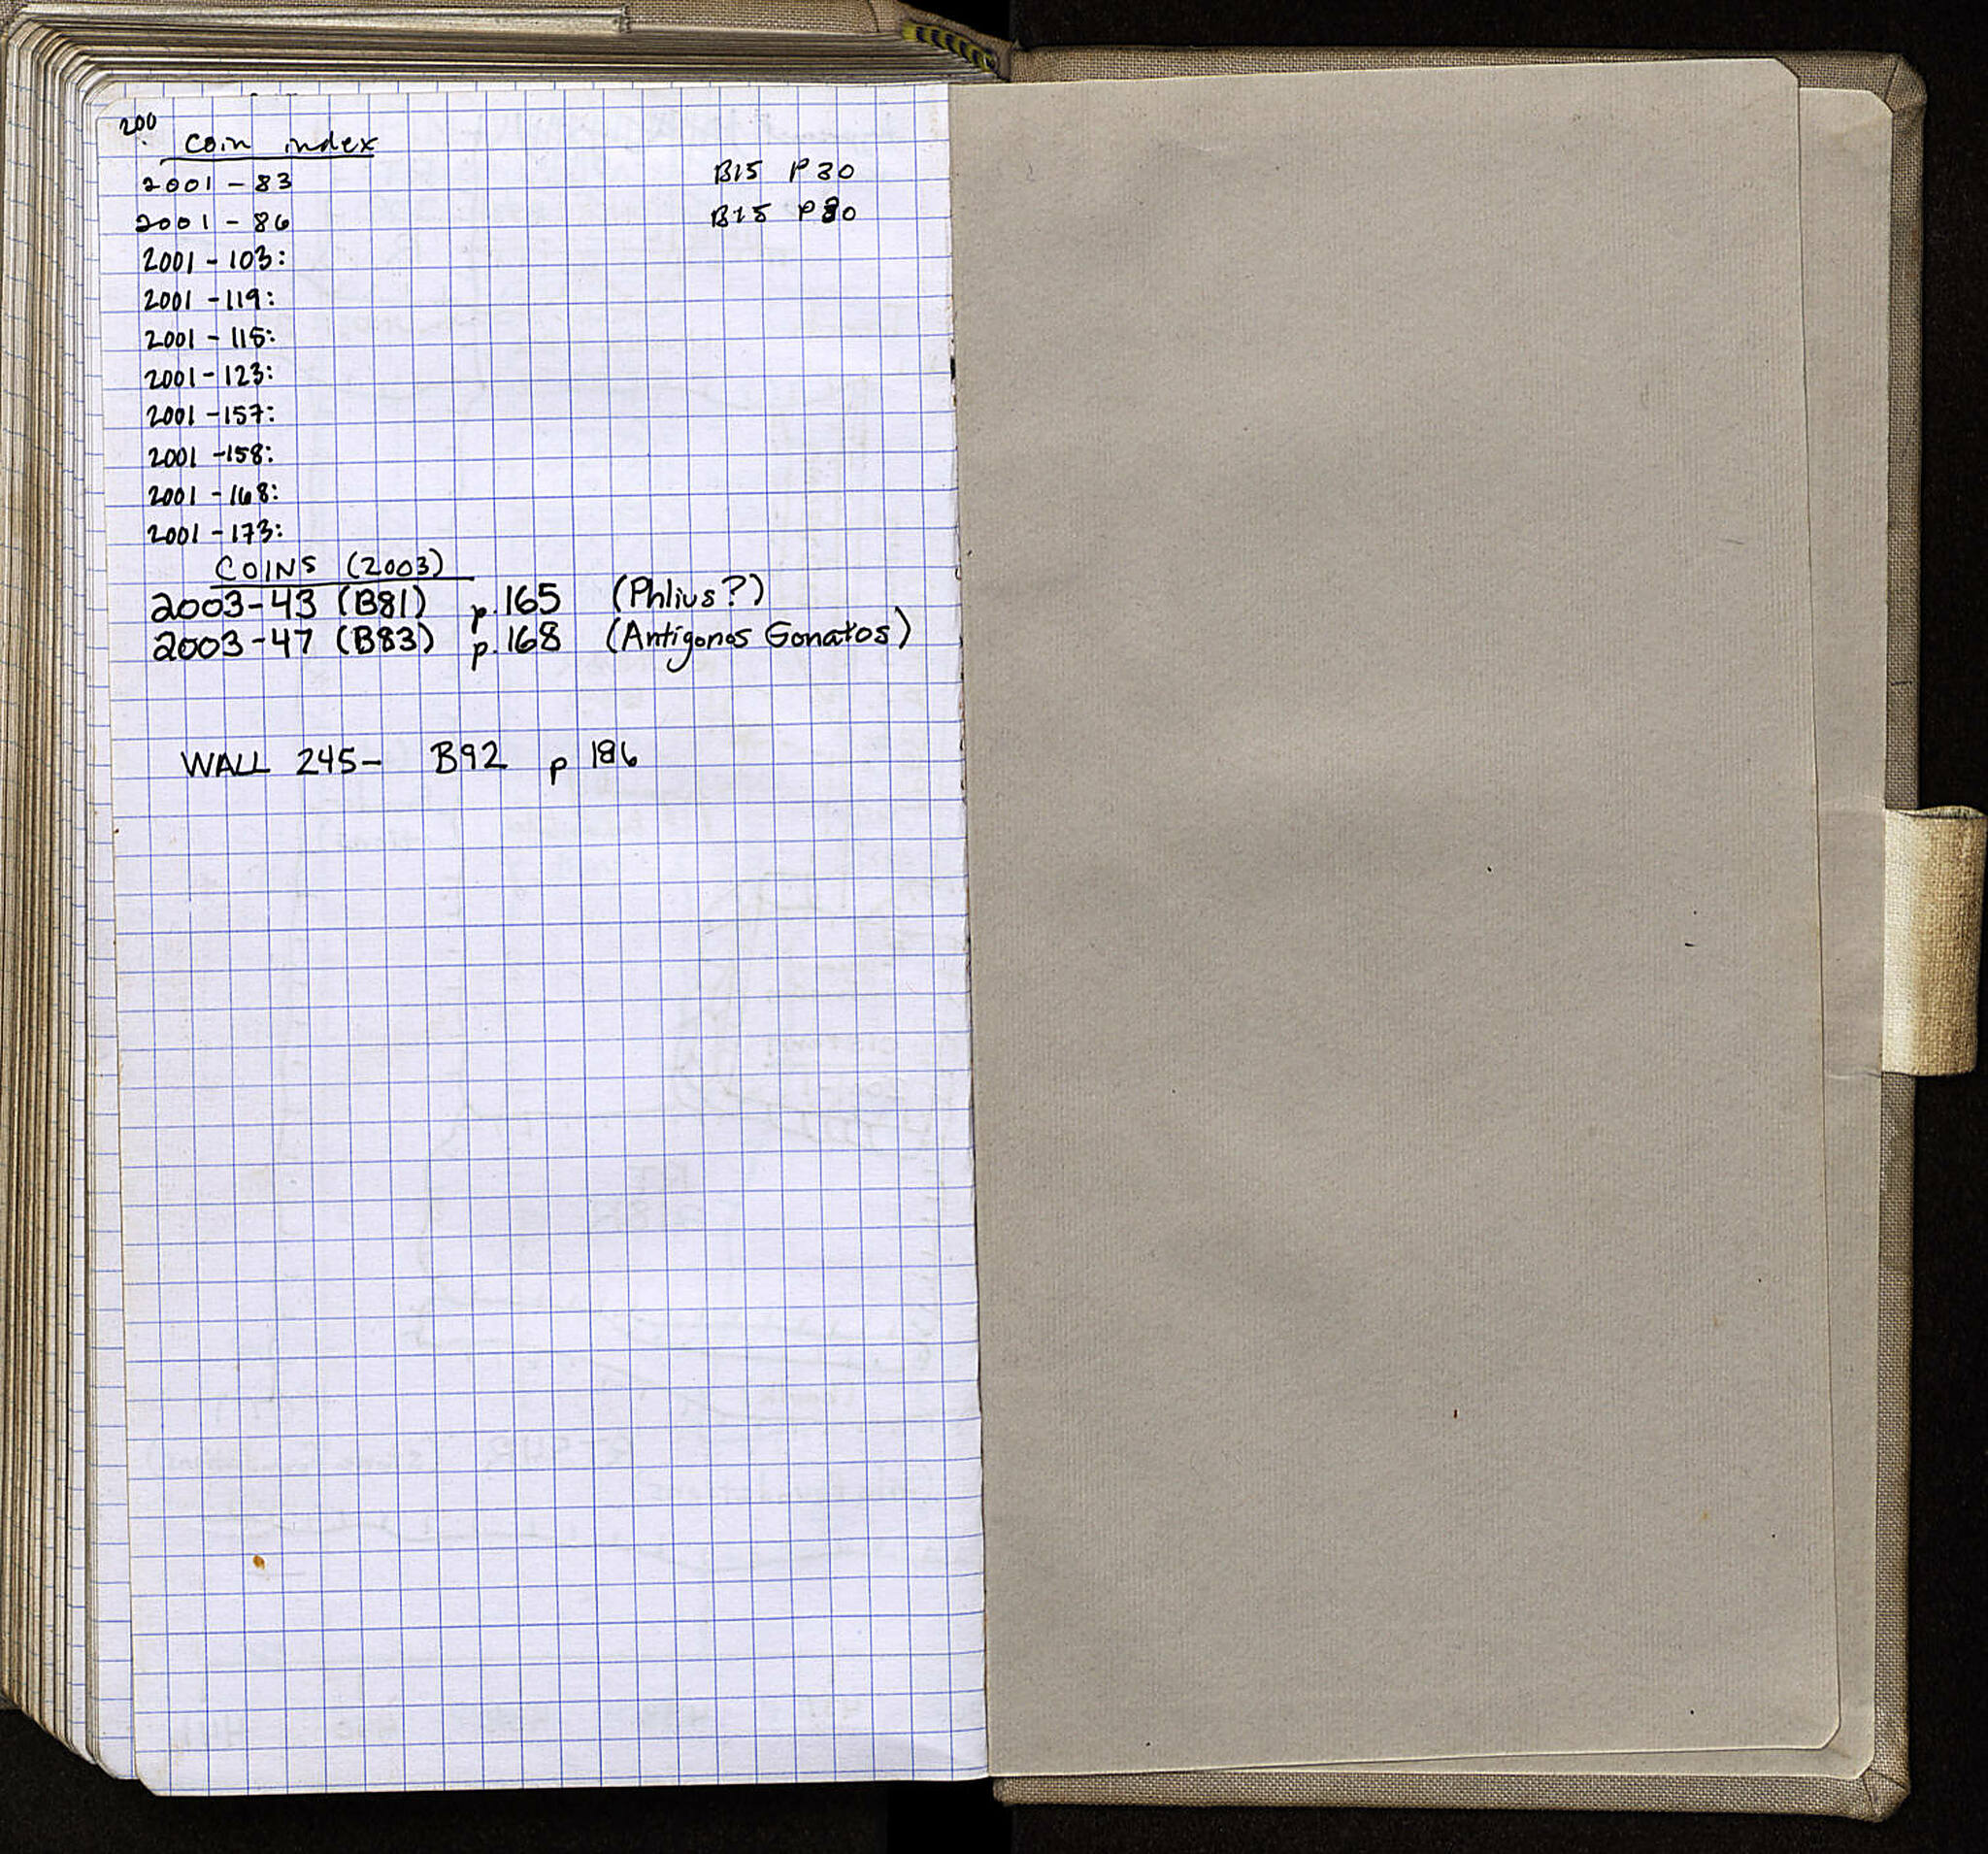 200
coin index
2001 - 83 B15 P 30
2001 - 86 B15 P 30
2001 - 103:
2001 - 119:
2001 - 115:
2001 - 123:
2001 - 157:
2001 - 158:
2001 - 168:
2001 - 173:
COINS (2003)
2003-43 (B81) p. 165 (Phlius?)
2003-47 (B83) p. 168 (Antigonos Gonatos)
WALL 245- B92 p 186